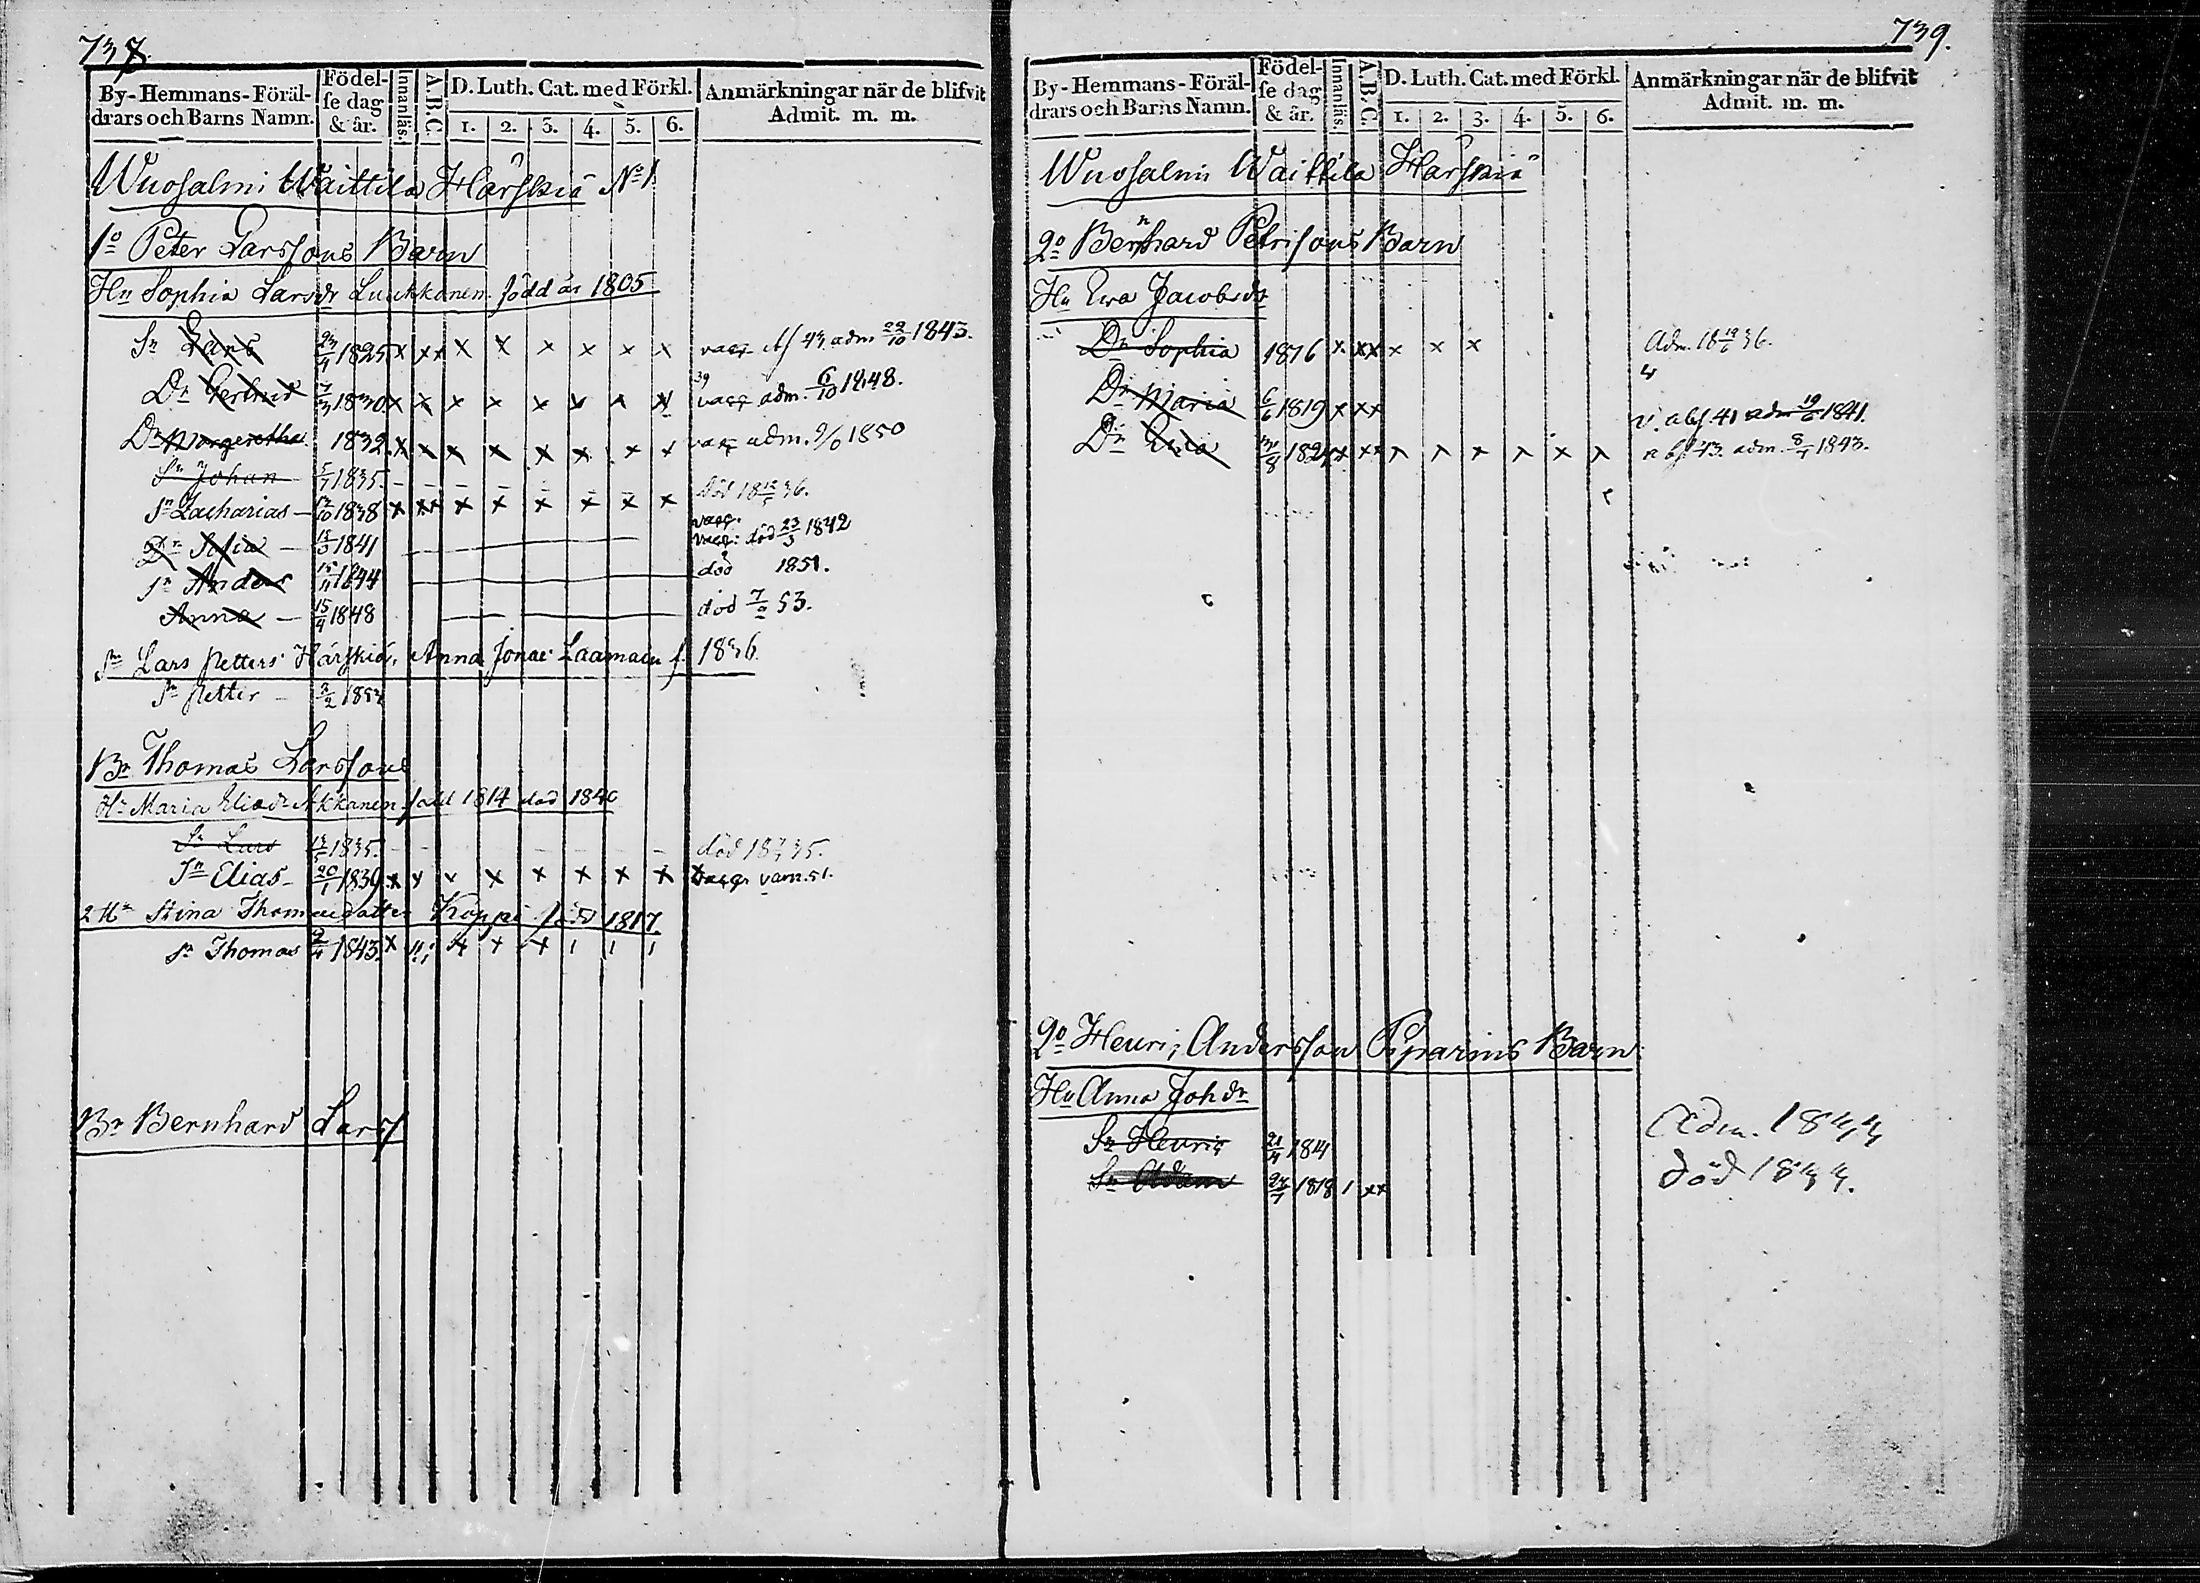 737.
By-Hemmans-Föräl-
drars och Barns Namn.
Födel-
se dag
& år.
Innanläs.
A.B.C.
D. Luth. Cat. med Förkl.
1. 2. 3. 4. 5. 6.
Anmärkningar när de blifvit
Admit. m. m.
Wuosalmi Waittila Härskiä No 1
1o Peter Larssons Barn
Hu Sophia Larsdr Luukkanen född år 1805
Sn Lars 23/4 1825 x xx x x x x x x vacc abs 43 adm 22/10 1843.
Dr Gertrud 7/3 1830 x x x x x x x x vacc adm. 6/10 1848.
Dr Margaretha 1832 x x x x x x x x vacc adm. 1850
Sn Johan 5/7 1835 död 18 36.
Sn Zacharias 1838 x xx x x x x x x vacc.
Dr Sofia 1841 vacc: död 23/3 1842
Sn Anders 1844 död 1851.
Anna 15/4 1848 död 53.
Sn Lars Petters Härskiä, Anna Jonae Laamain f. 1836
Sn Petter
Br Thomas Larssons
Hu Maria Eliædr Akkanen född 1814 död 1840
Sn Lars 1835 död 18 35.
Sn Elias 20/1 1839 x x x x x x x x vacc. 51.
2 Hu Stina Thomædotter Koppi född 1817
Sn Thomas 1843 x x x x
Br Bernhard Lars
739.
By-Hemmans-Föräl-
drars och Barns Namn.
Födel-
se dag
& år.
Innanläs.
A.B.C.
D. Luth. Cat. med Förkl.
1. 2. 3. 4. 5. 6.
Anmärkningar när de blifvit
Admit. m. m.
Wuosalmi Waittila Härskiä
2o Bernhard Petrisons Barn
Hu Ewa Jacobsdr
Dr Sophia 1816 x xx x x x Adm. 18 19/6 36.
Dr Maria 6/6 1819 x xx v. abs. 41 adm 19/6 1841.
Dr Eva 1824 x xx abs 43. adm. 1843.
2o Henric Andersson Piparins Barn
Hu Anna Johdr
Sn Henric 21/4 1814 Adm. 1833
Sn Adam 1818 1 xx död 1833.